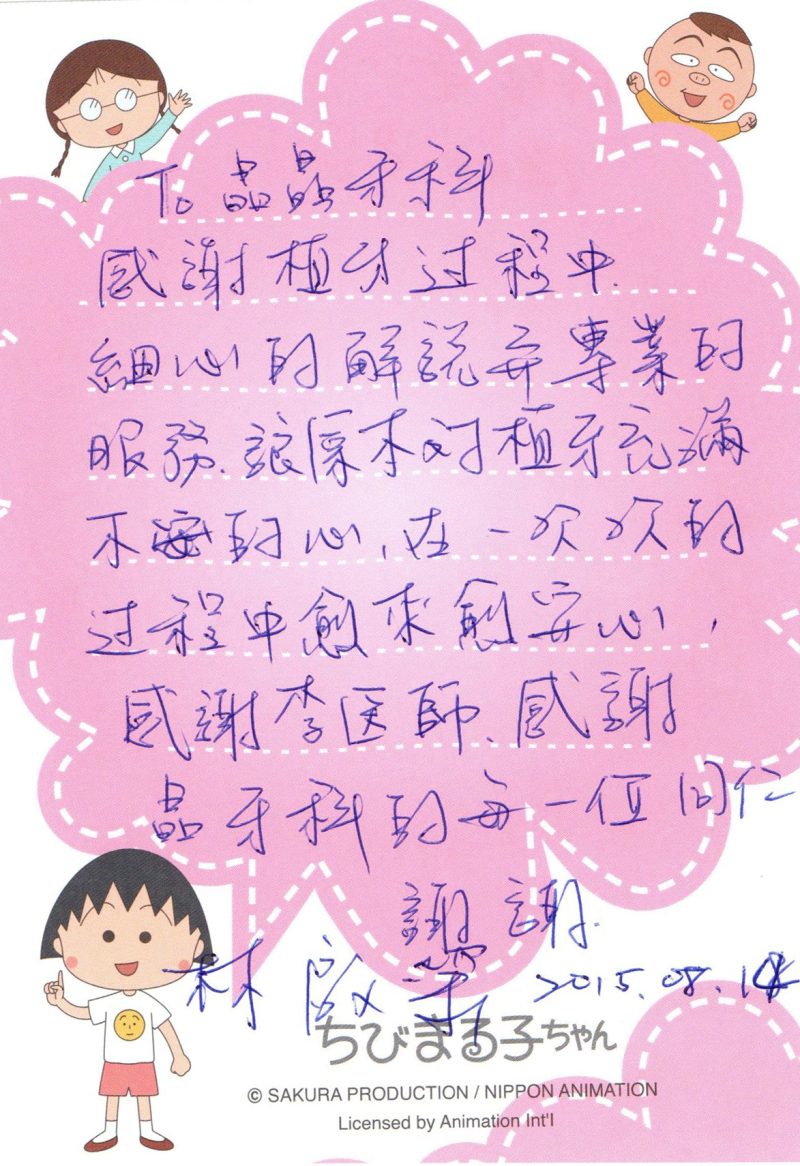 To 晶晶牙科
感謝植牙过程中
細心的解說並專業的
服務、讓原本对植牙充滿
不安的心,在一次次的
过程中愈來愈安心,
感謝李医師、感謝
晶牙科的每一位同仁
謝謝.
林 2015.08.14
ちびまる子ちゃん
© SAKURA PRODUCTION / NIPPON ANIMATION
Licensed by Animation Int'l